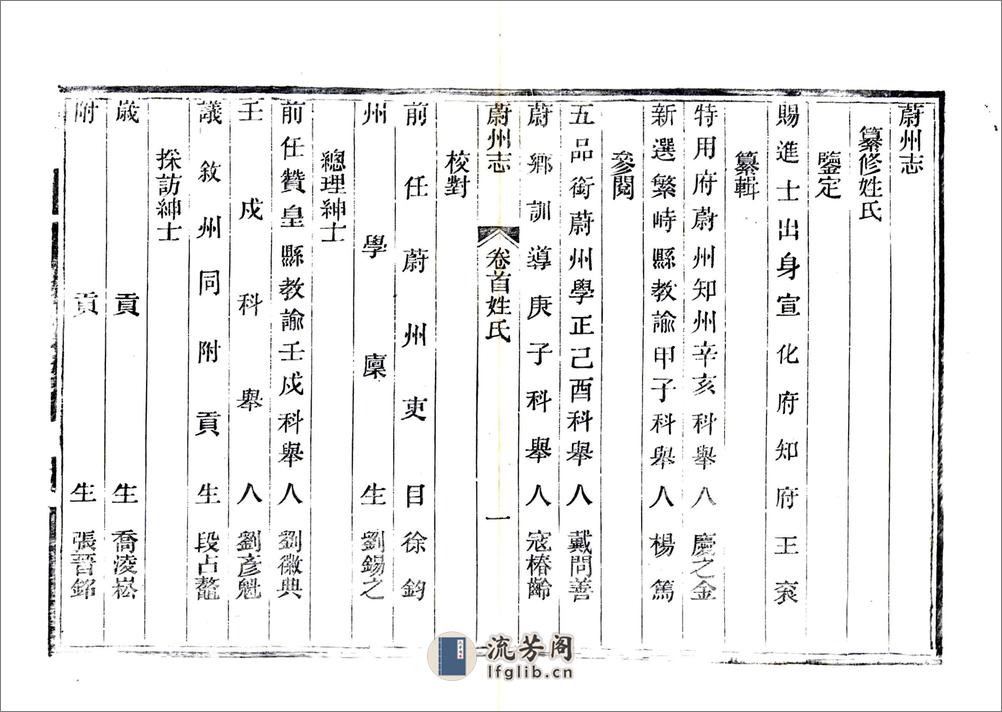 蔚州志
纂修姓氏
鑒定
賜進士出身宣化府知府王袞
纂輯
特用府蔚州知州辛亥科舉人慶之金
新選繁峙縣教諭甲子科舉人楊篤
參閱
五品銜蔚州學正己酉科舉人戴問善
蔚鄉訓導庚子科舉人寇椿齡
蔚州志
卷首姓氏
一
校對
前任蔚州吏目徐鈞
州學廩生劉錫之
總理紳士
前任贊皇縣教諭壬戌科舉人劉徽典
壬戌科舉人劉彥魁
議敘州同附貢生段占鼇
採訪紳士
歲貢生喬凌崧
附貢生張晉銘
流芳阁
lfglib.cn